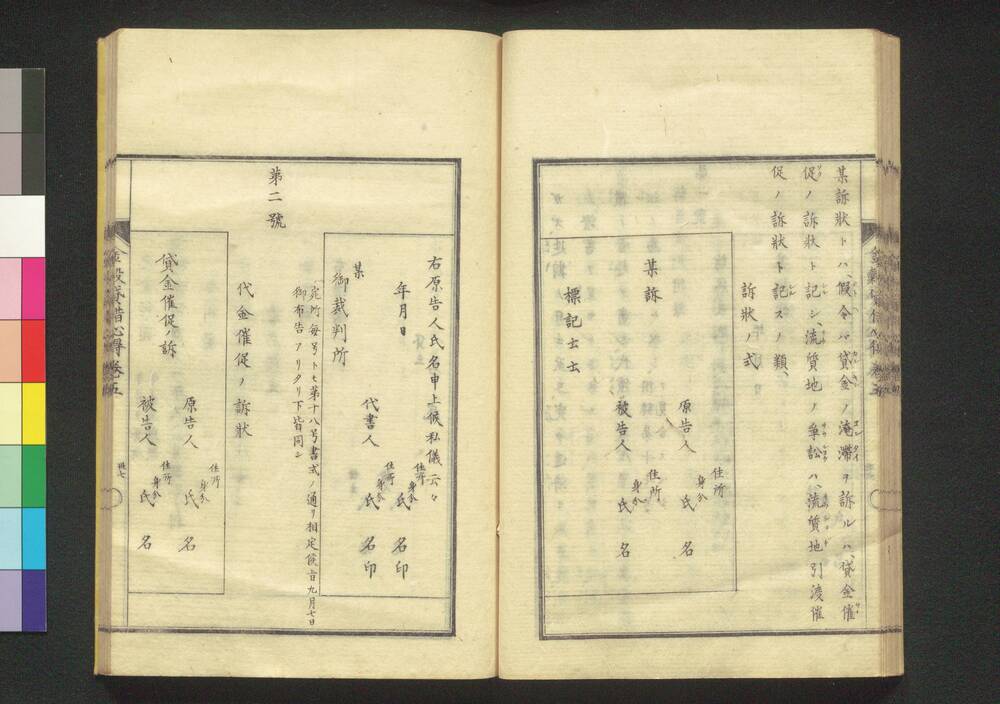 某訴狀トハ、假令ハ貸金ノ淹滯ヲ訴ルハ、貸金催
促ノ訴狀ト記シ、流質地ノ爭訟ハ、流質地引渡催
促ノ訴狀ト記スノ類、
訴狀ノ式
某訴
原告人 住所 身分 氏名
被告人 住所 身分 氏名
標記士士
右原告人氏名申上候私儀云々
年月日
住所 身分 氏名印
代書人 住所 身分 氏名印
某
御裁判所
宛所每号トモ第十八号書式ノ通リ相定候旨九月七日
御布告アリタリ下皆同シ
第二號
代金催促ノ訴狀
貸金催促ノ訴
原告人 住所 身分 氏名
被告人 住所 身分 氏名